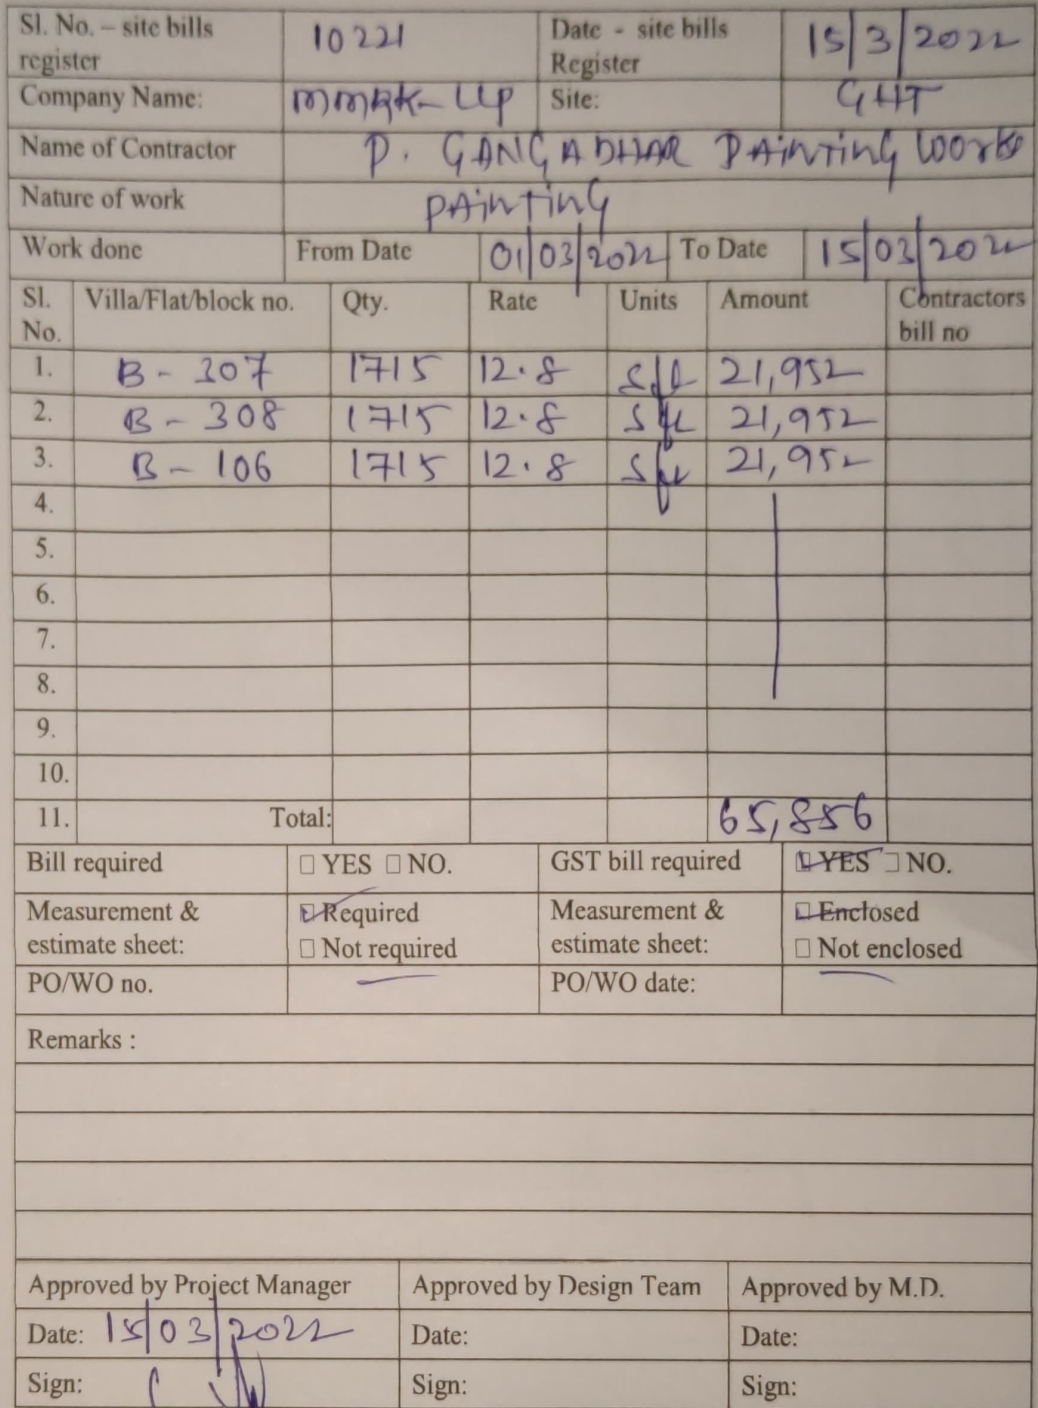 Sl. No. – site bills register 10221 Date - site bills Register 15/3/2022
Company Name: MMRK- LLP Site: GHT
Name of Contractor P. GANGADHAR PAiNTiNG Works
Nature of work PAiNTiNG
Work done From Date 01/03/2022 To Date 15/03/2022
Sl. No. Villa/Flat/block no. Qty. Rate Units Amount Contractors bill no
1. B - 307 1715 12.8 Sft 21,952
2. B - 308 1715 12.8 Sft 21,952
3. B - 106 1715 12.8 Sft 21,952
4.
5.
6.
7.
8.
9.
10.
11. Total: 65,856
Bill required ☐ YES ☐ NO. GST bill required ☑ YES ☐ NO.
Measurement & estimate sheet: ☑ Required ☐ Not required Measurement & estimate sheet: ☑ Enclosed ☐ Not enclosed
PO/WO no. — PO/WO date: —
Remarks :
Approved by Project Manager Approved by Design Team Approved by M.D.
Date: 15/03/2022 Date: Date:
Sign: Sign: Sign: